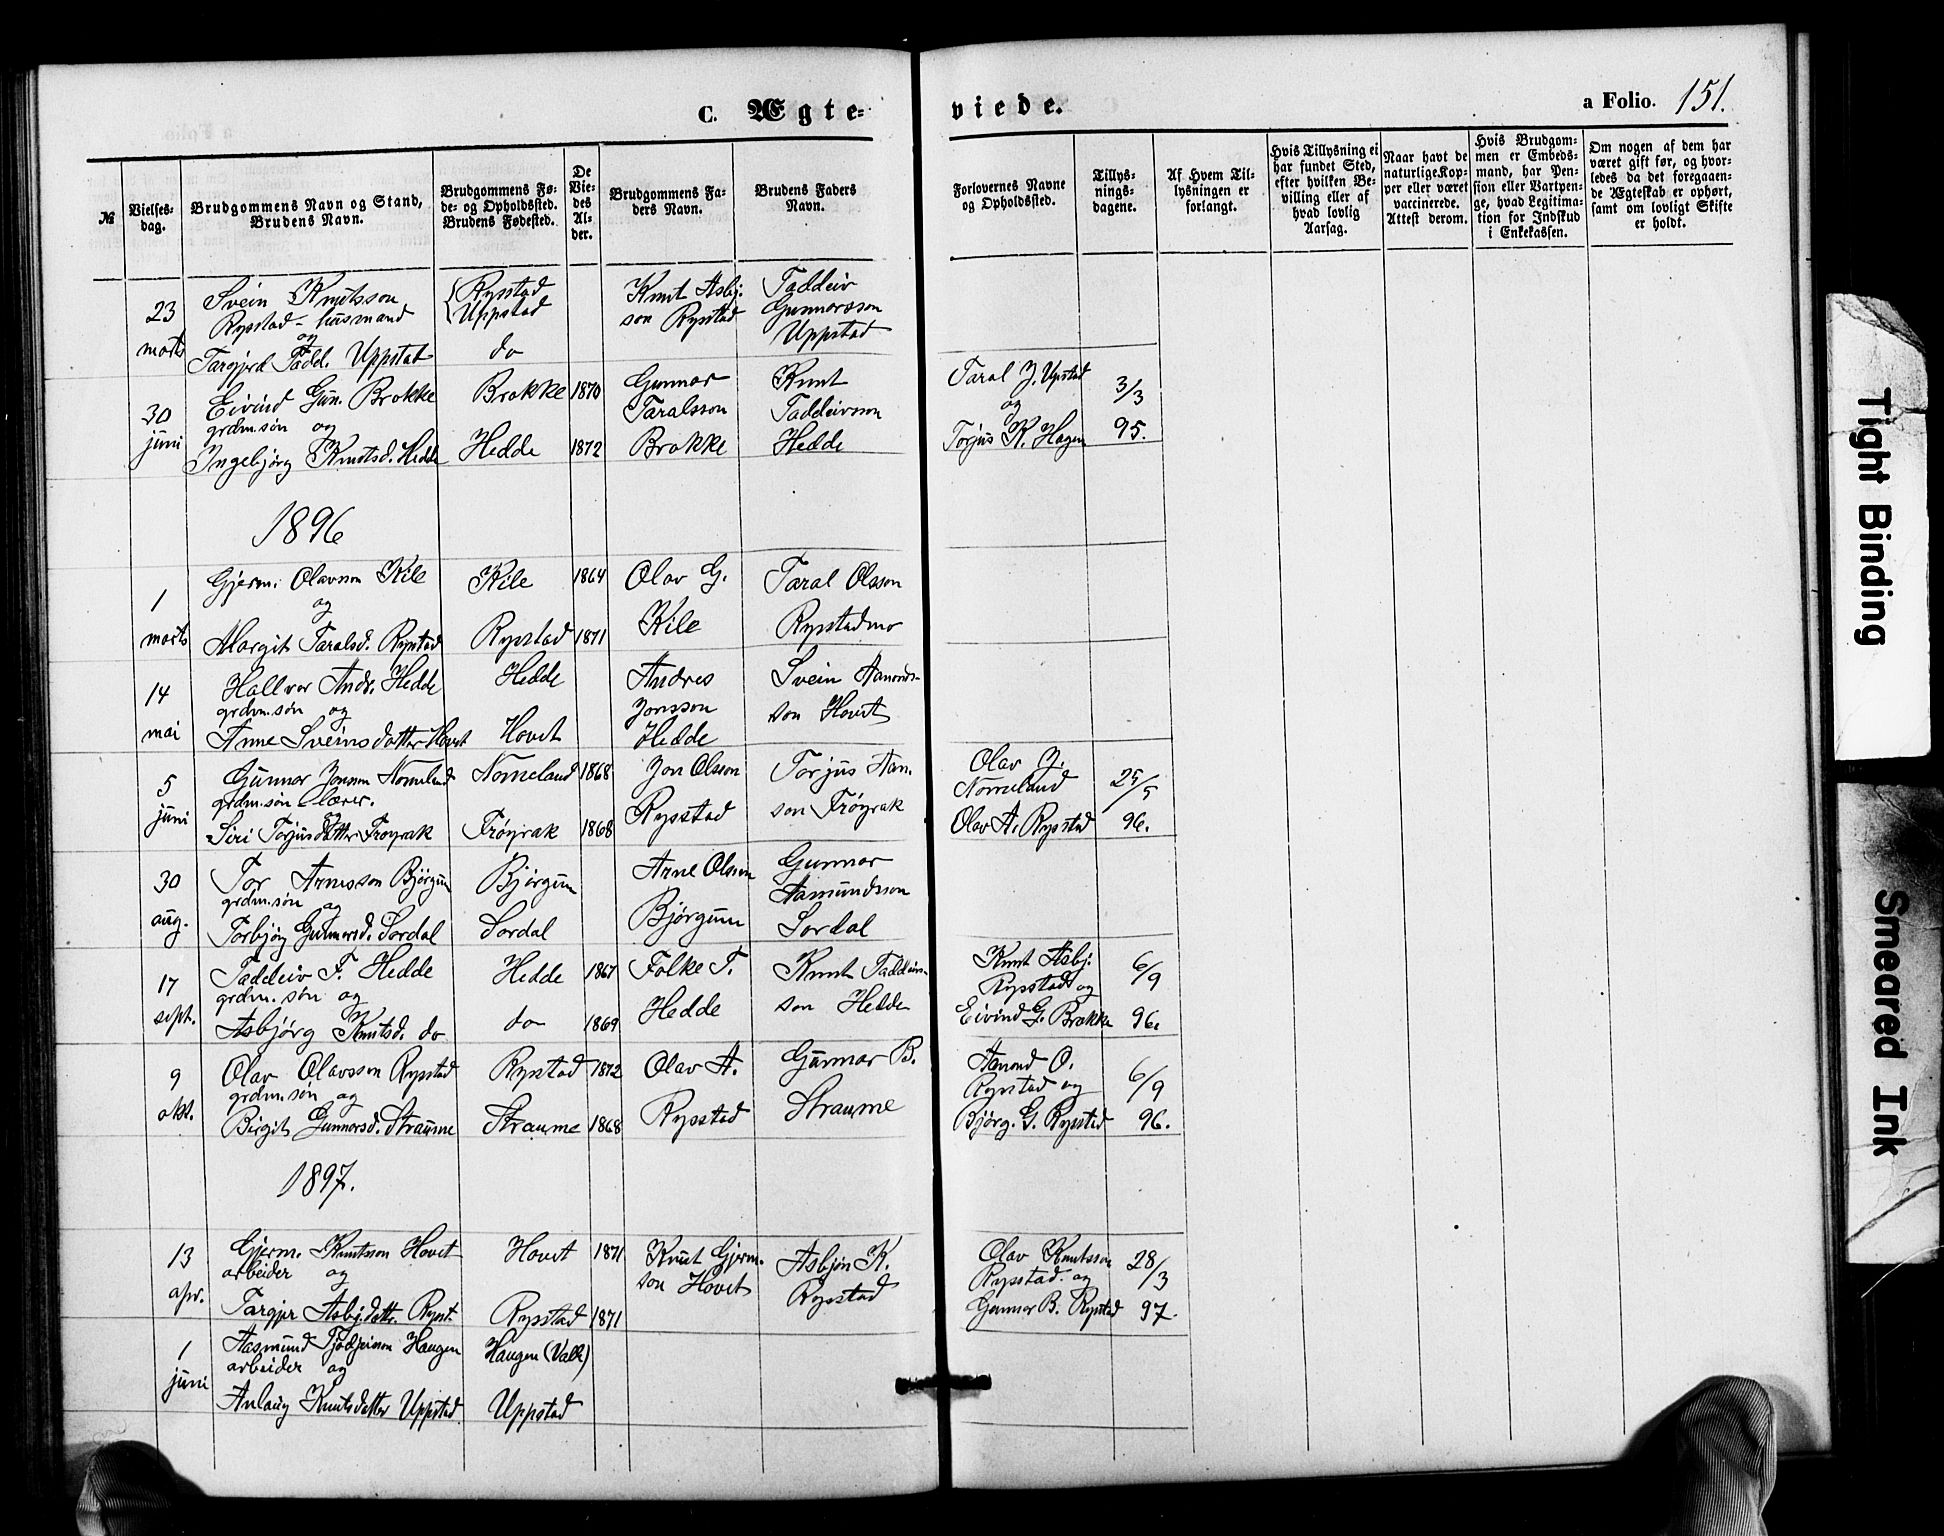 C. Ægte-
viede.
a Folio. 151.
№
Vielses-
dag.
Brudgommens Navn og Stand,
Brudens Navn.
Brudgommens Fø-
de- og Opholdssted.
Brudens Fødested.
De
Vie-
des
Al-
der.
Brudgommens Fa-
ders Navn.
Brudens Faders
Navn.
Forlovernes Navne
og Opholdssted.
Tillys-
nings-
dagene.
Af Hvem Til-
lysningen er
forlangt.
Hvis Tillysning ei
har fundet Sted,
efter hvilken Be-
villing eller af
hvad lovlig
Aarsag.
Naar havt de
naturlige Kop-
per eller været
vaccinerede.
Attest derom.
Hvis Brudgom-
men er Embeds-
mand, har Pen-
sion eller Vartpen-
ge, hvad Legitima-
tion for Indskud
i Enkekassen.
Om nogen af dem har
været gift før, og hvor-
ledes da det foregaaen-
de Ægteskab er ophørt,
samt om lovligt Skifte
er holdt.
23
marts
Svein Knutsson
Rysstad - husmand
og
Targjerd Tadd. Uppstat
Rysstad
Uppstad
do
Knut Asbj.
son Rysstad
Taddeiv
Gunnarsson
Uppstad
30
juni
Eivind Gun. Brokke
grdm.søn og
Ingebjörg Knutsd. Hedde
Brokke 1870
Hedde 1872
Gunnar
Taralsson
Brokke
Knut
Taddeivson
Hedde
Taral J. Upstad
og
Torjus K. Hagen
3/3
95.
1896
1
marts
Gjerm. Olavson Kile
og
Margit Taralsd. Rystad
Kile 1864
Rysstad 1871
Olav G.
Kile
Taral Olsson
Rysstadmo
14
mai
Hallvor Andr. Hedde
grdm.søn og
Anne Sveinsdotter Hovet
Hedde
Hovet
Andres
Jonsson
Hedde
Svein Aamonds-
son Hovet
5
juni
Gunnar Jonson Nomeland
grdm.søn lærer.
Siri Torjusdatter Frøyrak
Nomeland 1868
Frøyrak 1868
Jon Olsson
Rysstad
Torjus Aan.
son Frøyrak
Olav J.
Nomeland
Olav A. Rysstad
25/5
96.
30
aug.
Tor Arnesson Bjørgum
grdm.søn og
Torbjørg Gunnarsd. Sordal
Bjørgum
Sordal
Arne Olsson
Bjørgum
Gunnar
Aamundsson
Sordal
17
sept.
Taddeiv F. Hedde
grdm. søn og
Asbjørg Knutsd. do
Hedde 1867
do 1869
Folke T.
Hedde
Knut Taddeivs-
son Hedde
Knut Asbj.
Rysstad og
Eivind G. Brokke
6/9
96.
9
okt.
Olav Olavsson Rysstad
grdm.søn og
Birgit Gunnarsd. Straume
Rystad 1872
Straume 1868
Olav A.
Rysstad
Gunnar B.
Straume
Aamond O.
Rysstad og
Bjørg. G. Rysstad
6/9
96.
1897.
13
apr.
Gjerm. Knutsson Hovet
arbeider og
Targjer Asbj.datt. Rysst.
Hovet 1871
Rysstad 1871
Knut Gjerm.
son Hovet
Asbjøn K.
Rysstad
Olav Knutsson
Rysstad. og
Gunnar B. Rysstad
28/3
97.
1
juni
Aasmund Haugen
arbeider og
Anlaug Knutsdatter Uppstad
Haugen (Valle)
Uppstad
Tight Binding
Smeared Ink